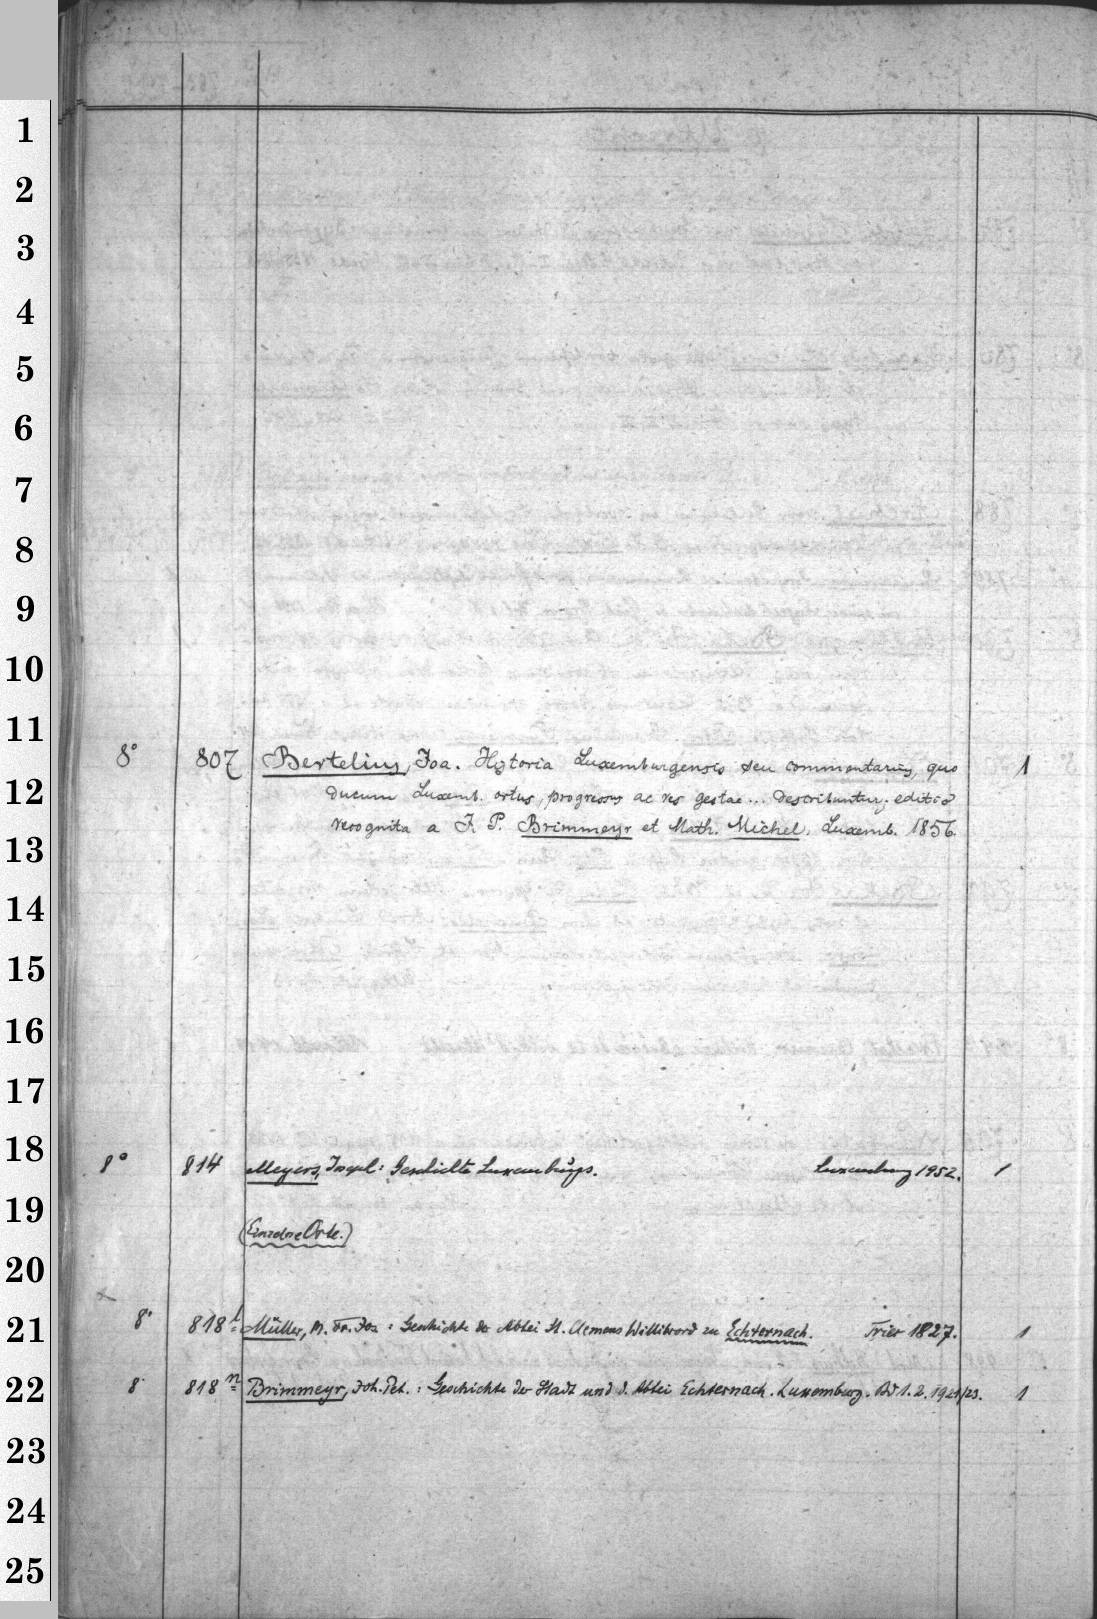 1
2
3
4
5
6
7
8
9
10
11
8° 807 Bertelius, Joa. Historia Luxemburgensis seu commentarius, quo 1
12
ducum Luxemb. ortus, progressus ac res gestae ... describuntur. editio
recognita a J. P. Brimmeyr et Math. Michel. Luxemb. 1856.
13
14
15
16
17
18
8° 814 Meyers, Joseph: Geschichte Luxemburgs. Luxemburg 1952. 1
19
(Einzelne Orte.)
20
21 8° 818 l Müller, M. Fr. Jos.: Geschichte der Abtei St. Clemens Willibrord zu Echternach. Trier 1827. 1
22 8° 818 n Brimmeyr, Joh. Pet.: Geschichte der Stadt und d. Abtei Echternach. Luxemburg. Bd 1. 2. 1921/23. 1
23
24
25